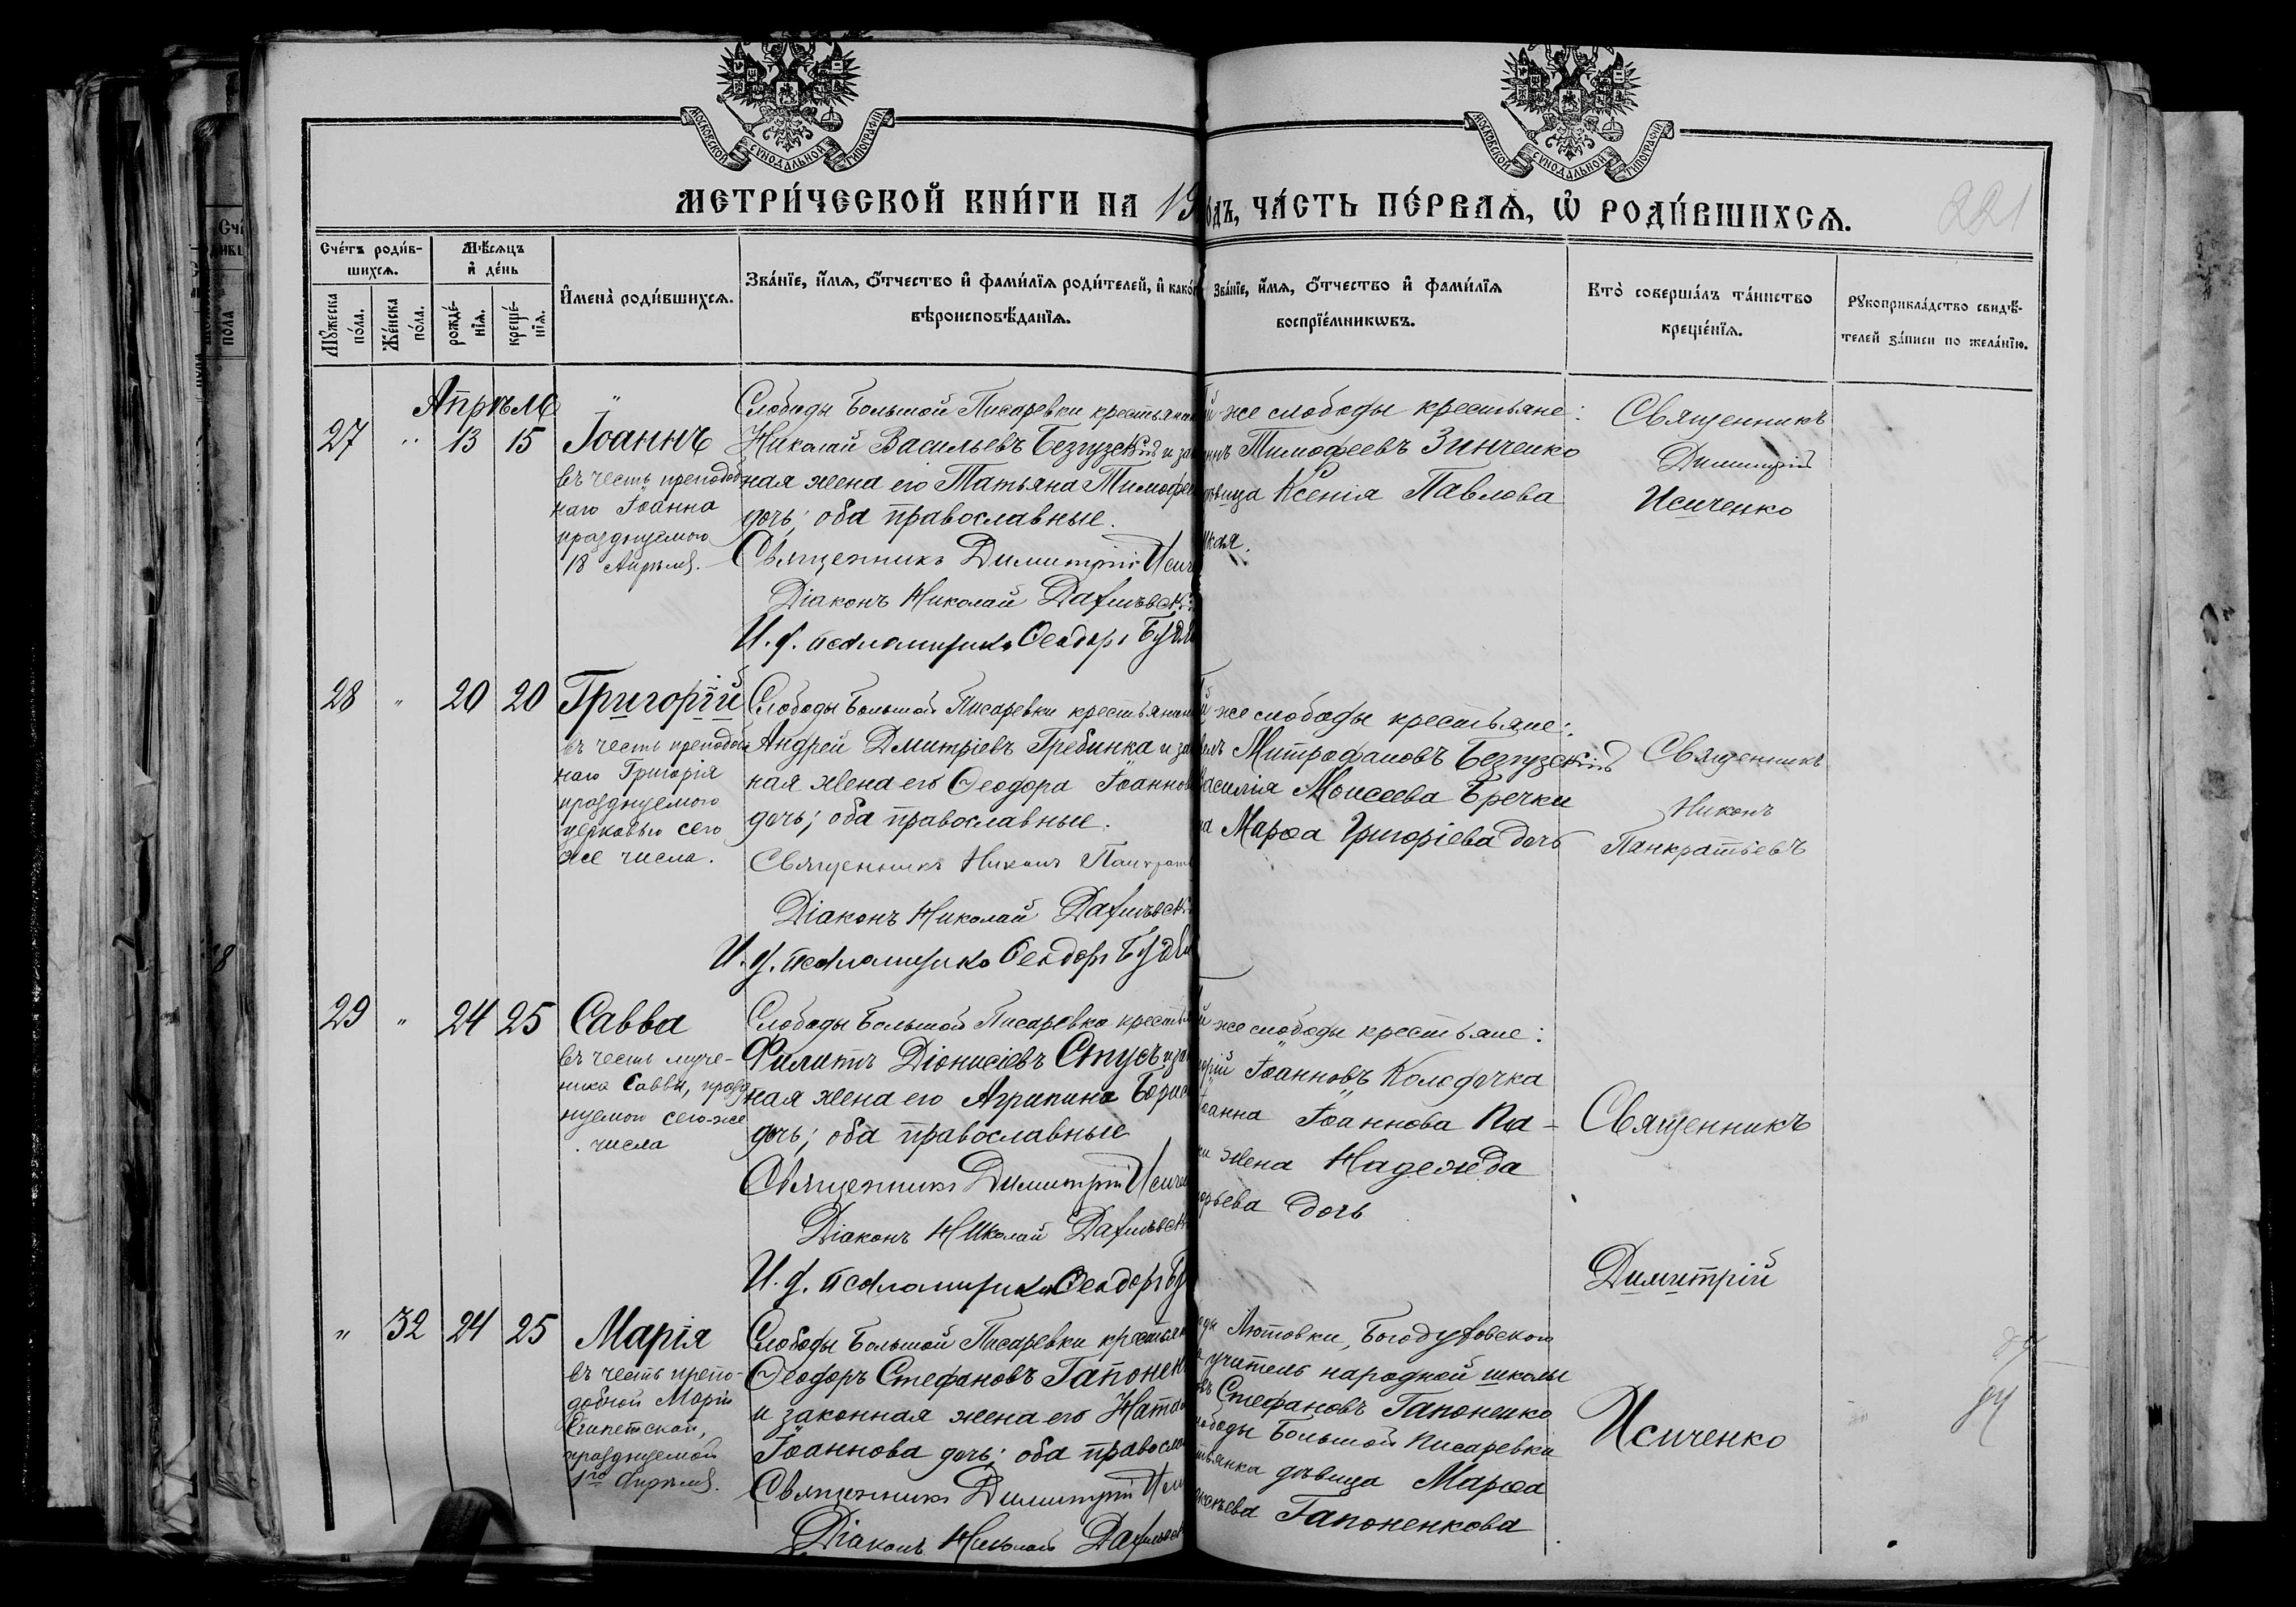 МОСКОВСКОЙ СѴНОДАЛЬНОЙ ТИПОГРАФІИ
МОСКОВСКОЙ СѴНОДАЛЬНОЙ ТИПОГРАФІИ
МЕТРИ́ЧЕСКОЙ КНИ́ГИ НА 19
ОДЪ, ЧА́СТЬ ПЕ́РВАѦ, Ѡ РОДИ́ВШИХСѦ.
221
Сче́тъ роди́в-
шихсѧ.
Мꙋ́жеска
по́ла.
Же́нска
по́ла.
Мѣ́сѧцъ
и҆ де́нь
рожде́-
нїѧ.
креще́-
нїѧ.
И҆мена̀ роди́вшихсѧ.
Зва́нїе, и҆́мѧ, ѻ҆́тчество и҆ фами́лїѧ роди́телей, и҆ како́
вѣроисповѣ́данїѧ.
Зва́нїе, и҆́мѧ, ѻ҆́тчество и҆ фами́лїѧ
воспрїе́мникѡвъ.
Кто̀ соверша́лъ та́инство
креще́нїѧ.
Рꙋкоприкла́дство свидѣ́-
телей за́писи по жела́нїю.
Апрѣль
27 " 13 15 Іоаннъ
въ честь преподоб
наго Іоанна
празднуемого
18 Апрѣля.
Слободы Большой Писаревки крестьянин
Николай Васильевъ Безгузскій и за
ная жена его Татьяна Тимофее
дочь; оба православные.
Священникъ Димитрій Исич
Діаконъ Николай
И. д. псаломщика Ѳеодоръ
й же слободы крестьяне:
ннъ Тимофеевъ Зинченко
ѣвица Ксенія Павлова
ская.
Священникъ
Димитрій
Исиченко
28 " 20 20 Григорій
въ честь преподоб
наго Григорія
празднуемого
церковью сего
же числа.
Слободы Большой Писаревки крестьянин
Андрей Дмитріевъ Гребинка и за
ная жена его Ѳеодора Іоаннов
дочь; оба православные.
Священникъ Никонъ Панкрать
Діаконъ Николай
И. д. псаломщика Ѳеодоръ
й же слободы крестьяне:
елъ Митрофановъ Безгузскій
Василія Моисеева Бречки
на Марѳа Григоріева дочь
Священникъ
Никонъ
Панкратьевъ
29 " 24 25 Савва
въ честь муче-
ника Саввы, празд
нуемого сего-же
числа
Слободы Большой Писаревки крестья
Филиппъ Діонисіевъ Стусъ и за
ная жена его Агрипина Борис
дочь; оба православные
Священникъ Димитрій Исич
Діаконъ Николай
И. д. псаломщика Ѳеодоръ
й же слободы крестьяне:
орій Іоанновъ Колодочка
Іоанна Іоаннова Па-
ки жена Надежда
рьева дочь
Священникъ
Димитрій
" 32 24 25 Марія
въ честь препо-
добной Маріи
Египетской,
празднуемой
1го Апрѣля.
Слободы Большой Писаревки крестьян
Ѳеодоръ Стефановъ Гапонен
и законная жена его Ната
Іоаннова дочь; оба правосла
Священникъ Димитрій Иси
Діаконъ Николай
оды Лютовки, Богодуховскою
учитель народной школы
въ Стефановъ Гапоненко
лободы Большой Писаревки
тьянка дѣвица Марѳа
Гапоненкова
Исиченко